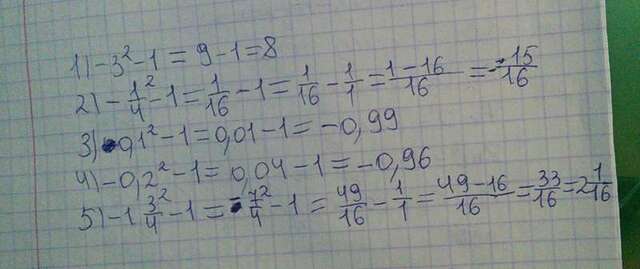 1) -3² - 1 = 9 - 1 = 8
2) - 1/4² - 1 = 1/16 - 1 = 1/16 - 1/1 = 1-16/16 = -15/16
3) -0,1² - 1 = 0,01 - 1 = -0,99
4) -0,2² - 1 = 0,04 - 1 = -0,96
5) -1 3²/4 - 1 = -7²/4 - 1 = 49/16 - 1/1 = 49-16/16 = 33/16 = 2 1/16